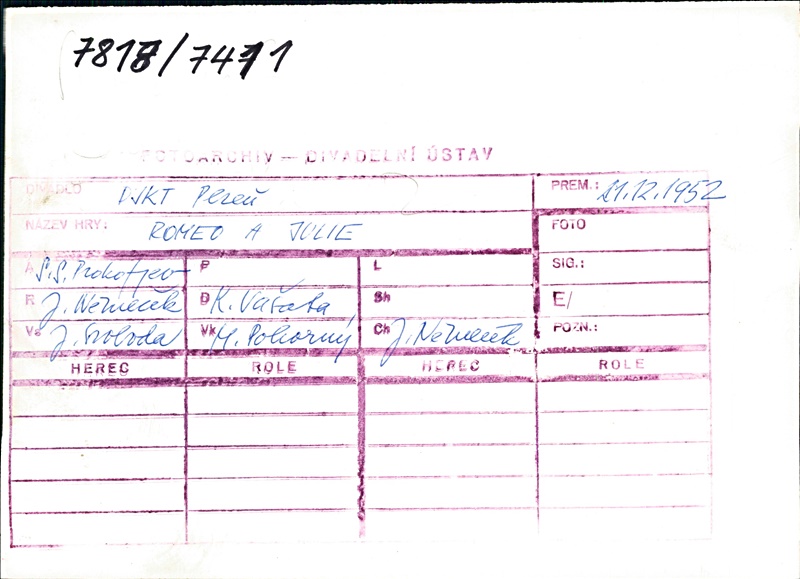 7817/7471
FOTOARCHIV — DIVADELNÍ ÚSTAV
DIVADLO DJKT Plzeň PREM.: 21.12.1952
NÁZEV HRY: ROMEO A JULIE FOTO
A S.S. Prokofjev P L SIG.:
R J. Němeček D K. Vašata Sh E/
Vs J. Svoboda Vk M. Pokorný Ch J. Němeček POZN.:
HEREC ROLE HEREC ROLE